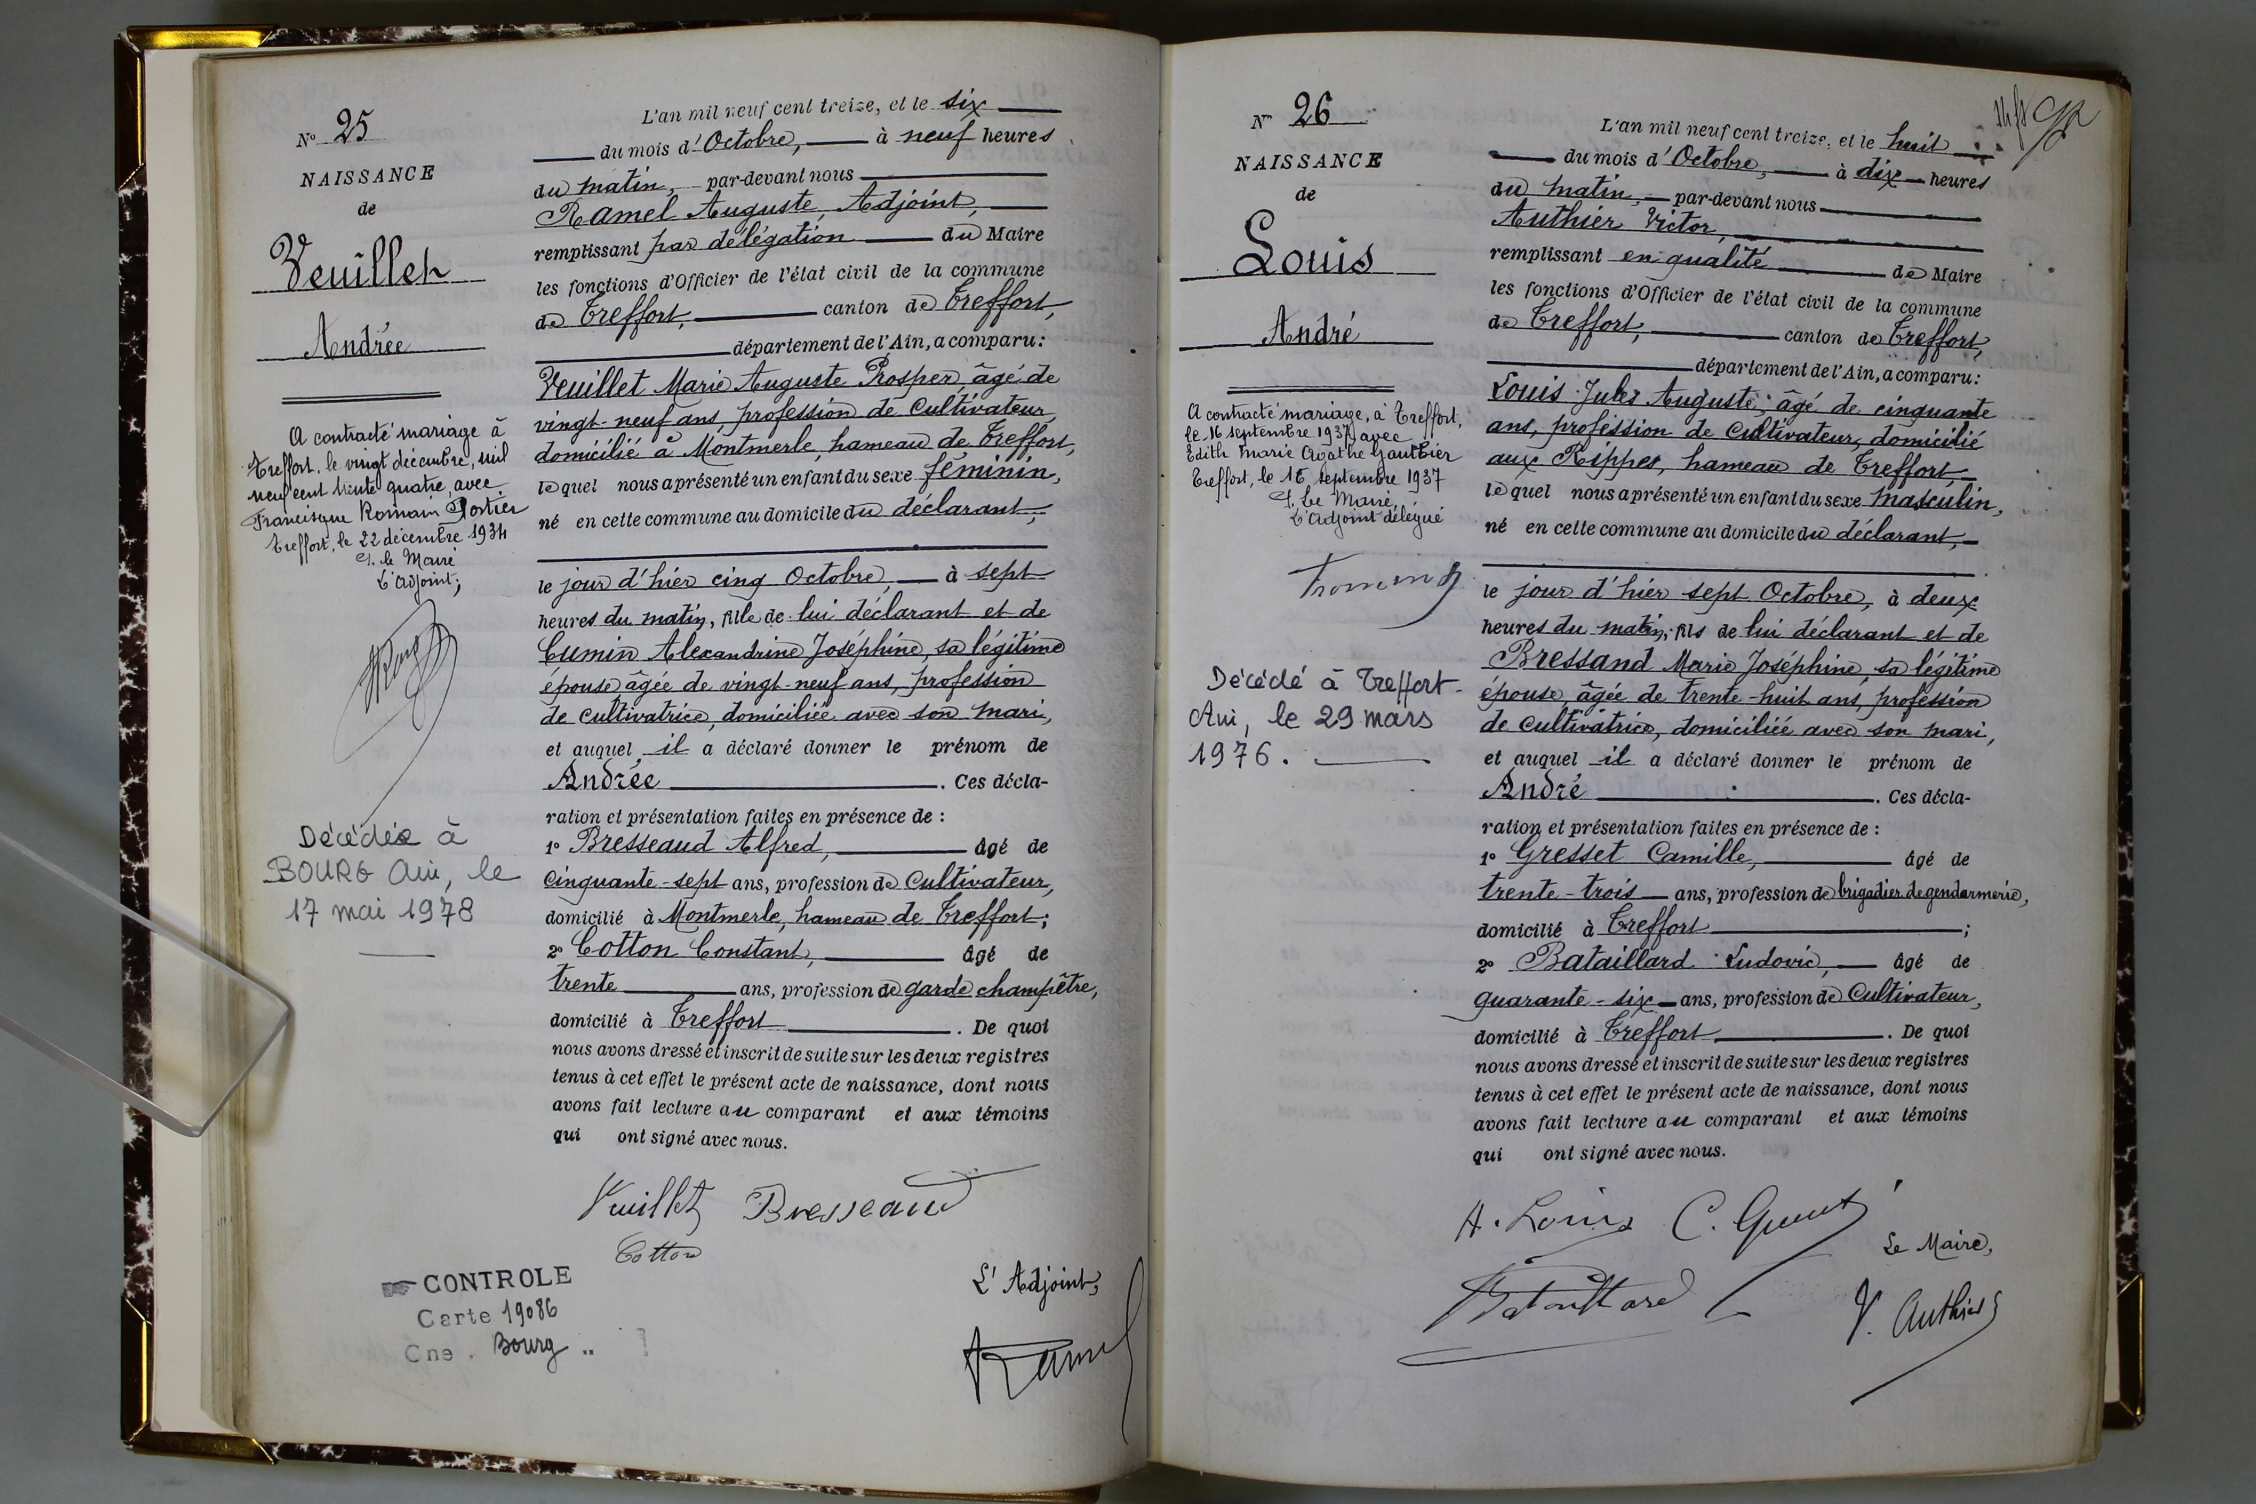 N° 25
NAISSANCE
de
Veuillet
Andrée
A contracté mariage à
Treffort, le vingt décembre, mil
neuf cent trente quatre, avec
Francisque Romain Portier
Treffort, le 22 décembre 1934
P. le Maire
L'Adjoint;
Décédée à
BOURG Ain, le
17 mai 1978
L'an mil neuf cent treize, et le six
du mois d'Octobre, à neuf heures
du matin, par-devant nous
Ramel Auguste, Adjoint,
remplissant par délégation du Maire
les fonctions d'Officier de l'état civil de la commune
de Treffort, canton de Treffort,
département de l'Ain, a comparu:
Veuillet Marie Auguste Prosper, âgé de
vingt-neuf ans, profession de Cultivateur,
domicilié à Montmerle, hameau de Treffort,
lequel nous a présenté un enfant du sexe féminin,
né en cette commune au domicile du déclarant,
le jour d'hier cinq Octobre, à sept
heures du matin, fille de lui déclarant et de
Cumin Alexandrine Joséphine, sa légitime
épouse, âgée de vingt-neuf ans, profession
de cultivatrice, domiciliée avec son mari,
et auquel il a déclaré donner le prénom de
Andrée. Ces décla-
ration et présentation faites en présence de :
1° Bresseaud Alfred, âgé de
cinquante-sept ans, profession de Cultivateur,
domicilié à Montmerle, hameau de Treffort;
2° Cotton Constant, âgé de
trente ans, profession de garde champêtre,
domicilié à Treffort. De quoi
nous avons dressé et inscrit de suite sur les deux registres
tenus à cet effet le présent acte de naissance, dont nous
avons fait lecture au comparant et aux témoins
qui ont signé avec nous.
Veuillet Bresseaud
Cotton
L'Adjoint,
Ramel
CONTROLE
Carte 19086
Cne. Bourg
N° 26
NAISSANCE
de
Louis
André
A contracté mariage, à Treffort,
le 16 septembre 1937, avec
Edith Marie Agathe Gauthier
Treffort, le 16 septembre 1937
P. Le Maire,
L'Adjoint délégué
Décédé à Treffort-
Ain, le 29 mars
1976.
L'an mil neuf cent treize, et le huit
du mois d'Octobre, à dix heures
du matin, par-devant nous
Authier Victor,
remplissant en qualité de Maire
les fonctions d'Officier de l'état civil de la commune
de Treffort, canton de Treffort,
département de l'Ain, a comparu:
Louis Jules Auguste, âgé de cinquante
ans, profession de Cultivateur, domicilié
aux Rippes, hameau de Treffort,
lequel nous a présenté un enfant du sexe masculin,
né en cette commune au domicile du déclarant,
le jour d'hier sept Octobre, à deux
heures du matin, fils de lui déclarant et de
Bressand Marie Joséphine, sa légitime
épouse âgée de trente-huit ans, profession
de cultivatrice, domiciliée avec son mari,
et auquel il a déclaré donner le prénom de
André. Ces décla-
ration et présentation faites en présence de :
1° Gresset Camille, âgé de
trente-trois ans, profession de brigadier de gendarmerie,
domicilié à Treffort;
2° Bataillard Ludovic, âgé de
quarante-six ans, profession de Cultivateur,
domicilié à Treffort. De quoi
nous avons dressé et inscrit de suite sur les deux registres
tenus à cet effet le présent acte de naissance, dont nous
avons fait lecture au comparant et aux témoins
qui ont signé avec nous.
A. Louis C. Gresset
Bataillard
Le Maire,
V. Authier